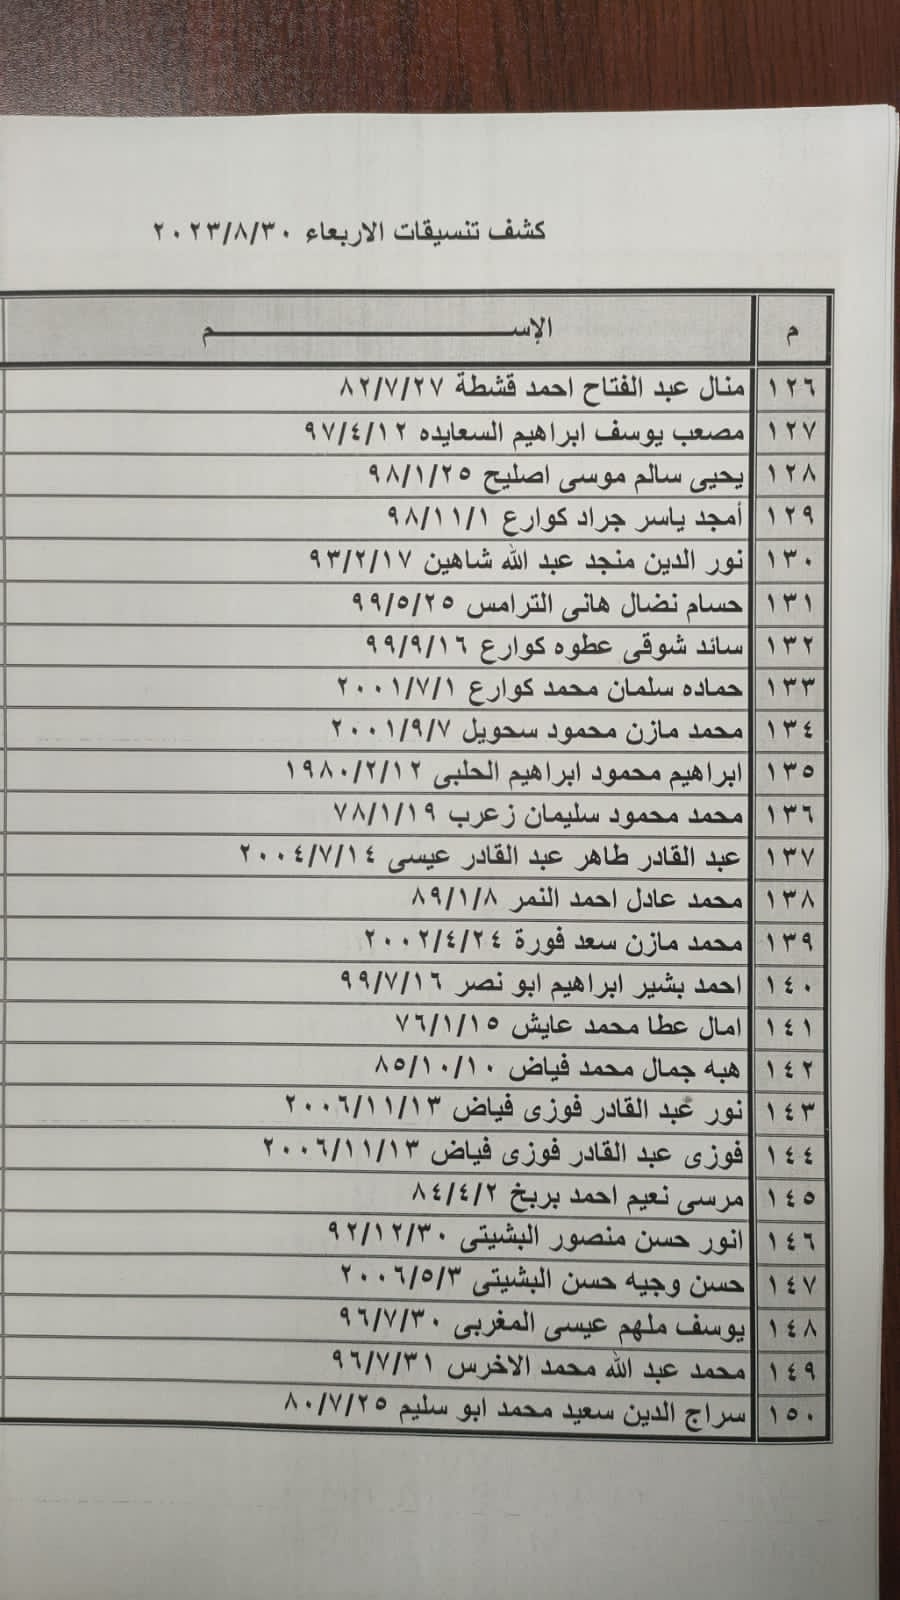 كشف تنسيقات الاربعاء ٢٠٢٣/٨/٣٠
م الإســـــــــــــــــــــــــــــم
١٢٦ منال عبد الفتاح احمد قشطة ٨٢/٧/٢٧
١٢٧ مصعب يوسف ابراهيم السعايده ٩٧/٤/١٢
١٢٨ يحيى سالم موسى اصليح ٩٨/١/٢٥
١٢٩ أمجد ياسر جراد كوارع ٩٨/١١/١
١٣٠ نور الدين منجد عبد الله شاهين ٩٣/٢/١٧
١٣١ حسام نضال هانى الترامس ٩٩/٥/٢٥
١٣٢ سائد شوقى عطوه كوارع ٩٩/٩/١٦
١٣٣ حماده سلمان محمد كوارع ٢٠٠١/٧/١
١٣٤ محمد مازن محمود سحويل ٢٠٠١/٩/٧
١٣٥ ابراهيم محمود ابراهيم الحلبى ١٩٨٠/٢/١٢
١٣٦ محمد محمود سليمان زعرب ٧٨/١/١٩
١٣٧ عبد القادر طاهر عبد القادر عيسى ٢٠٠٤/٧/١٤
١٣٨ محمد عادل احمد النمر ٨٩/١/٨
١٣٩ محمد مازن سعد فورة ٢٠٠٢/٤/٢٤
١٤٠ احمد بشير ابراهيم ابو نصر ٩٩/٧/١٦
١٤١ امال عطا محمد عايش ٧٦/١/١٥
١٤٢ هبه جمال محمد فياض ٨٥/١٠/١٠
١٤٣ نور عبد القادر فوزى فياض ٢٠٠٦/١١/١٣
١٤٤ فوزى عبد القادر فوزى فياض ٢٠٠٦/١١/١٣
١٤٥ مرسى نعيم احمد بربخ ٨٤/٤/٢
١٤٦ انور حسن منصور البشيتى ٩٢/١٢/٣٠
١٤٧ حسن وجيه حسن البشيتى ٢٠٠٦/٥/٣
١٤٨ يوسف ملهم عيسى المغربى ٩٦/٧/٣٠
١٤٩ محمد عبد الله محمد الاخرس ٩٦/٧/٣١
١٥٠ سراج الدين سعيد محمد ابو سليم ٨٠/٧/٢٥